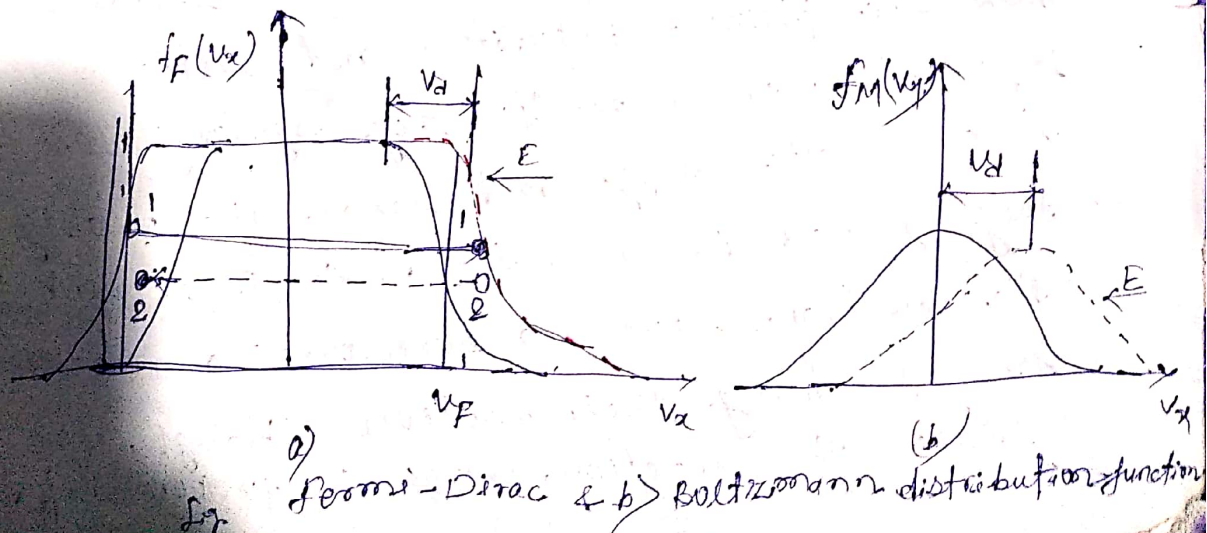 fF(Vx)
Vd
E
1
1
2
2
VF
Vx
a)
fM(Vx)
Vd
E
Vx
(b)
Fig
Fermi-Dirac & b) Boltzmann distribution function